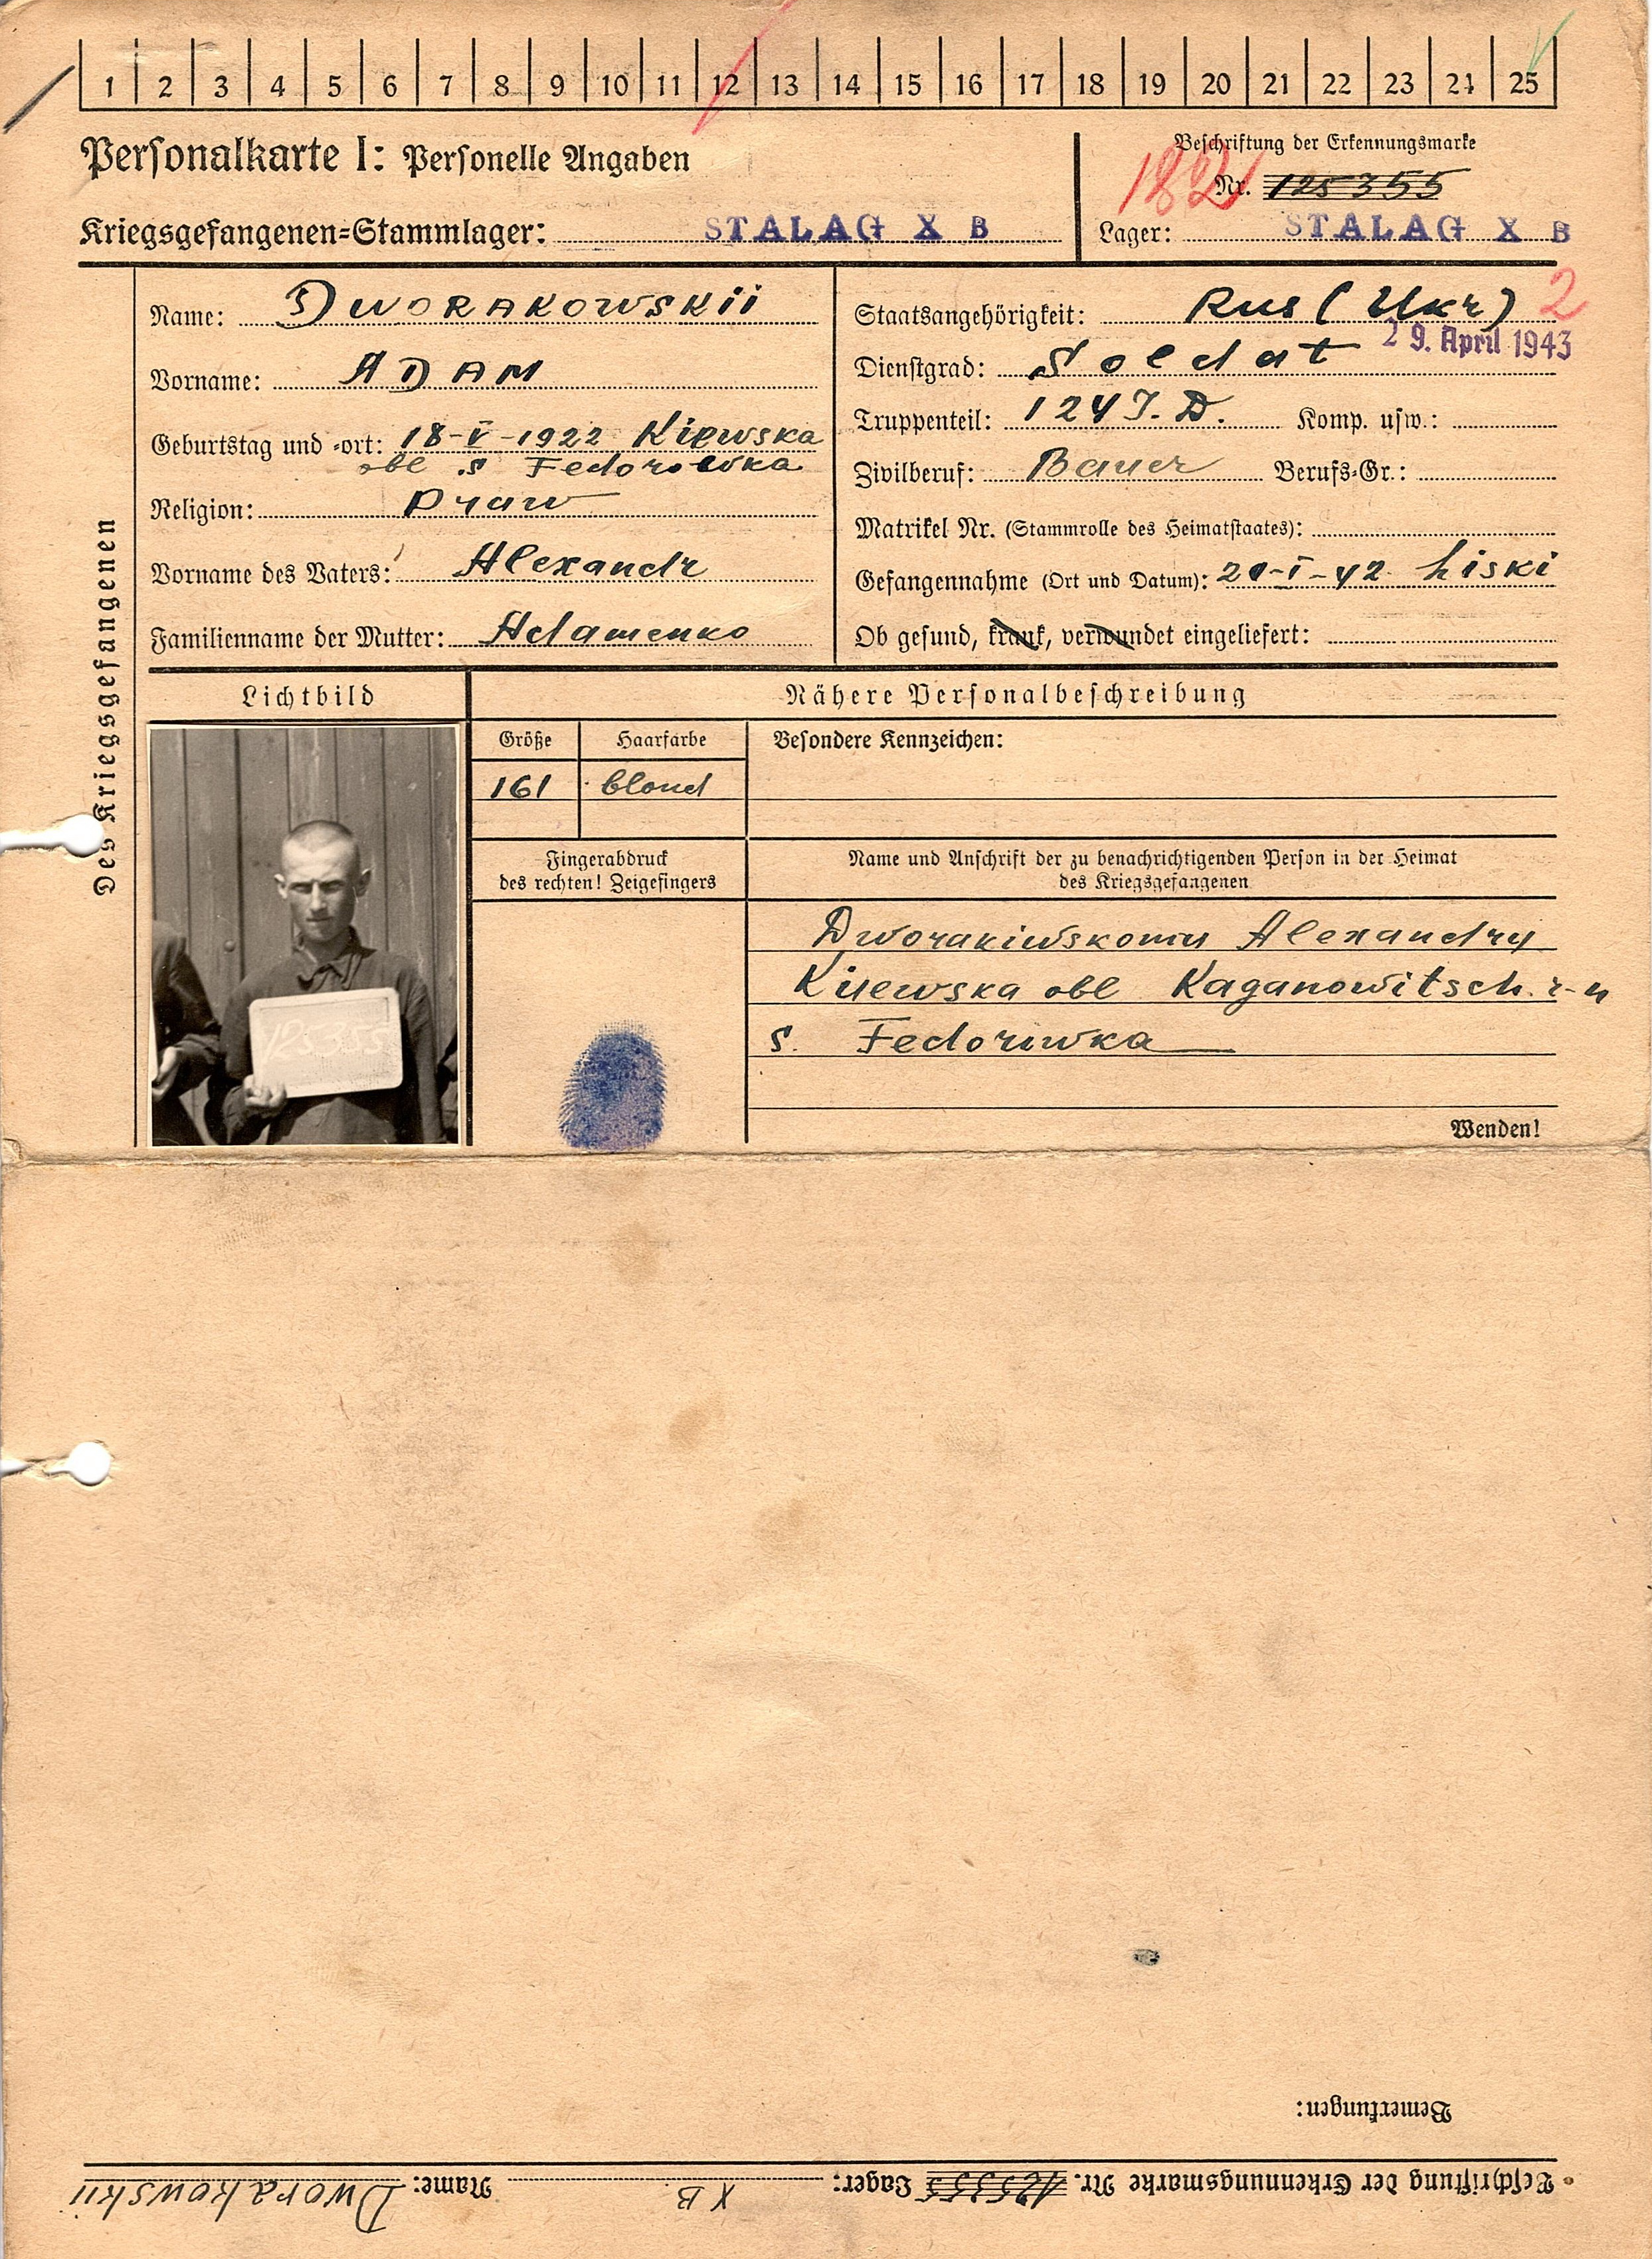 1 2 3 4 5 6 7 8 9 10 11 12 13 14 15 16 17 18 19 20 21 22 23 24 25
Personalkarte I: Personelle Angaben
Beschriftung der Erkennungsmarke
182 Nr. 125355
Kriegsgefangenen=Stammlager: STALAG X B
Lager: STALAG X B
Des Kriegsgefangenen
Name: DWORAKOWSKII
Vorname: ADAM
Geburtstag und =ort: 18-V-1922 Kiewska
obl s Fedorowka
Religion: Praw
Vorname des Vaters: Alexandr
Familienname der Mutter: Adamenko
Staatsangehörigkeit: Rus (Ukr) 2
29. April 1943
Dienstgrad: Soldat
Truppenteil: 124 I.D. Komp. usw.:
Zivilberuf: Bauer Berufs=Gr.:
Matrikel Nr. (Stammrolle des Heimatstaates):
Gefangennahme (Ort und Datum): 20-I-42 Liski
Ob gesund, krank, verwundet eingeliefert:
Lichtbild
Nähere Personalbeschreibung
Größe Haarfarbe Besondere Kennzeichen:
161 blond
Fingerabdruck
des rechten! Zeigefingers
Name und Anschrift der zu benachrichtigenden Person in der Heimat
des Kriegsgefangenen
Dworakiwskomu Alexandry
Kiiewska obl Kaganowitsch. r-n
s. Fedoriwka
125355
Wenden!
Bemerkungen:
Beschriftung der Erkennungsmarke Nr. 125355 Lager: X B Name: Dworakowskii